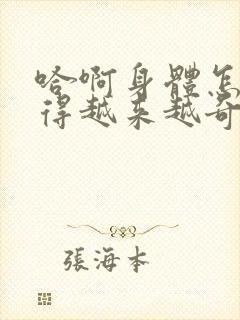 哈啊身體怎
得越来越奇
張海本